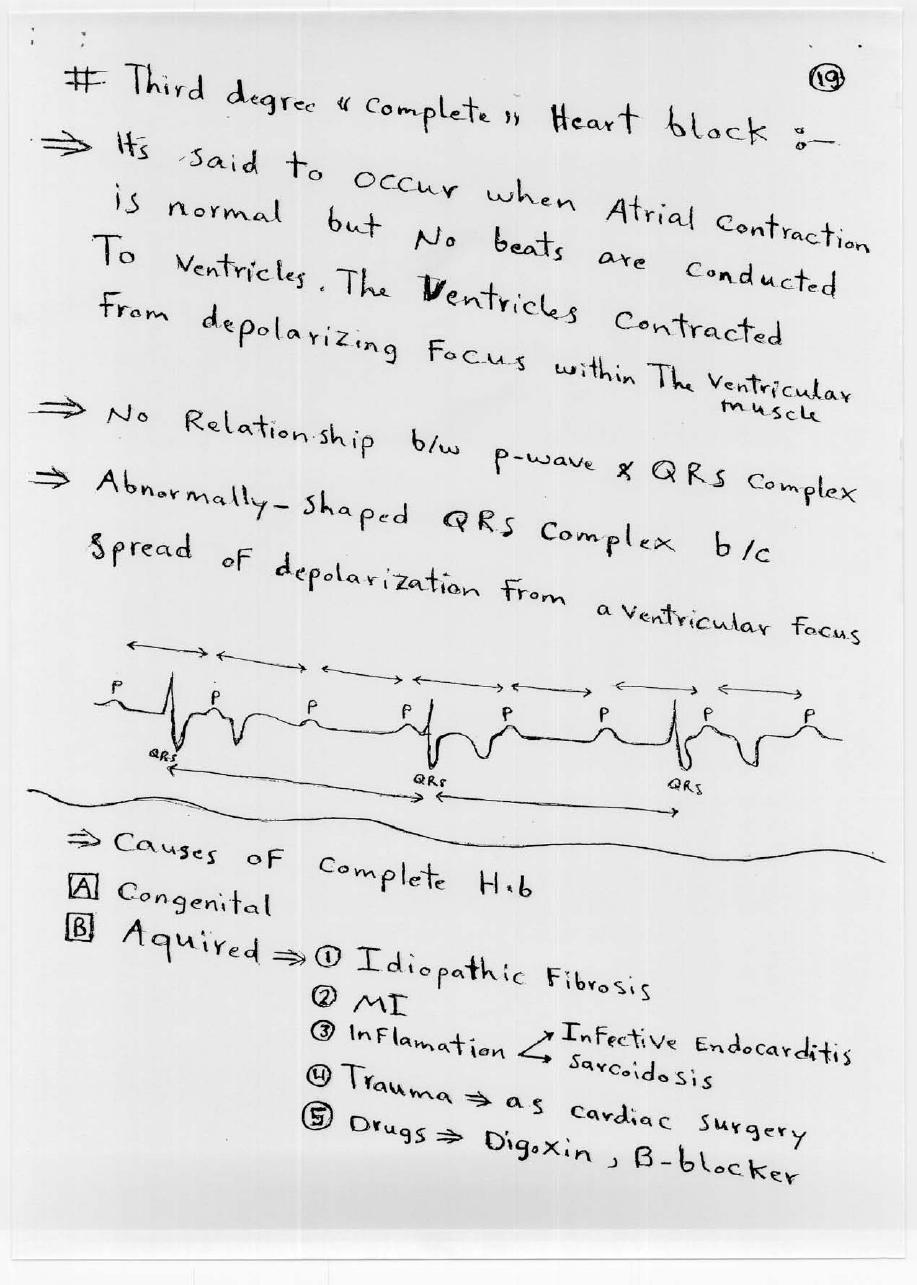 19
# Third degree " Complete " Heart block :-
⇒ It's said to occur when Atrial Contraction
is normal but No beats are conducted
To Ventricles. The Ventricles Contracted
from depolarizing Focus within The Ventricular
muscle
⇒ No Relationship b/w p-wave & QRS Complex
⇒ Abnormally-shaped QRS Complex b/c
Spread of depolarization from a ventricular focus
P P P P P P P P
QRS QRS QRS
⇒ Causes of Complete H.b
A Congenital
B Aquired ⇒ ① Idiopathic Fibrosis
② MI
③ Inflamation ↗ Infective Endocarditis
→ Sarcoidosis
④ Trauma ⇒ as cardiac surgery
⑤ Drugs ⇒ Digoxin , B-blocker